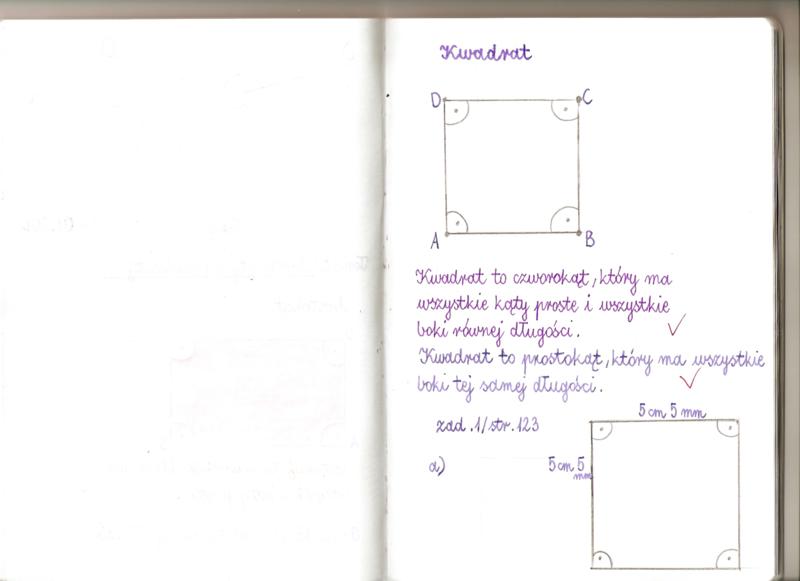 Kwadrat
D C
A B
Kwadrat to czworokąt, który ma
wszystkie kąty proste i wszystkie
boki równej długości.
Kwadrat to prostokąt, który ma wszystkie
boki tej samej długości.
zad.1/str.123
5cm 5mm
a) 5cm 5
mm